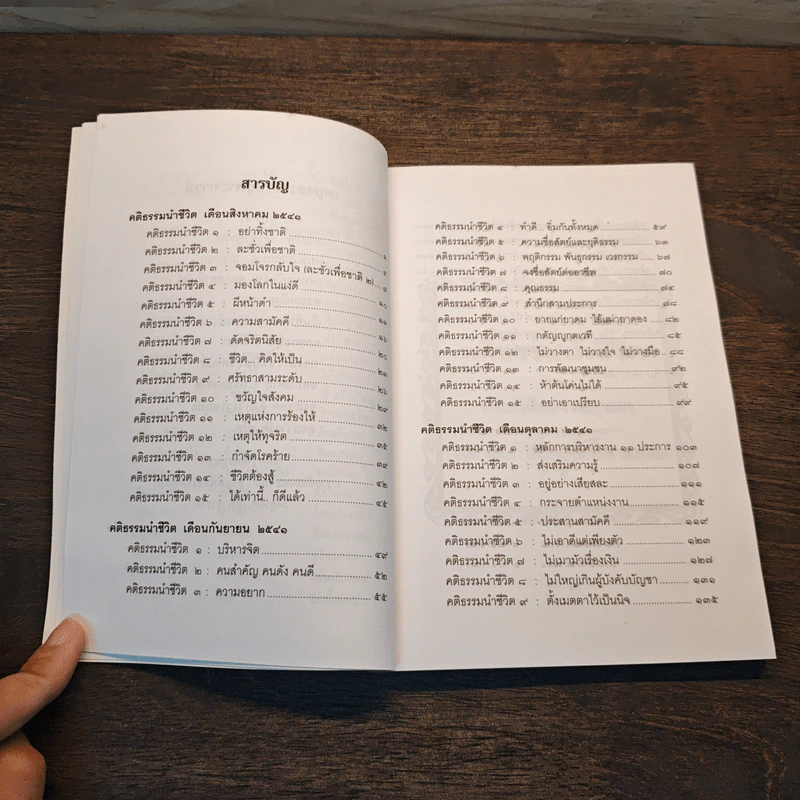 สารบัญ
คติธรรมนำชีวิต เดือนสิงหาคม ๒๕๔๑
คติธรรมนำชีวิต ๑ : อย่าทิ้งชาติ ๑
คติธรรมนำชีวิต ๒ : ละชั่วเพื่อชาติ ๔
คติธรรมนำชีวิต ๓ : จอมโจรกลับใจ (ละชั่วเพื่อชาติ ๒)
คติธรรมนำชีวิต ๔ : มองโลกในแง่ดี ๑๐
คติธรรมนำชีวิต ๕ : ผีหน้าดำ
คติธรรมนำชีวิต ๖ : ความสามัคคี ๑๖
คติธรรมนำชีวิต ๗ : ดัดจริตนิสัย ๒๐
คติธรรมนำชีวิต ๘ : ชีวิต... คิดให้เป็น
คติธรรมนำชีวิต ๙ : ศรัทธาสามระดับ ๒๖
คติธรรมนำชีวิต ๑๐ : ขวัญใจสังคม ๒๙
คติธรรมนำชีวิต ๑๑ : เหตุแห่งการร้องไห้ ๓๒
คติธรรมนำชีวิต ๑๒ : เหตุให้ทุจริต ๓๕
คติธรรมนำชีวิต ๑๓ : กำจัดโรคร้าย ๓๙
คติธรรมนำชีวิต ๑๔ : ชีวิตต้องสู้ ๔๒
คติธรรมนำชีวิต ๑๕ : ได้เท่านี้.. ก็ดีแล้ว ๔๕
คติธรรมนำชีวิต เดือนกันยายน ๒๕๔๑
คติธรรมนำชีวิต ๑ : บริหารจิต ๔๙
คติธรรมนำชีวิต ๒ : คนสำคัญ คนดัง คนดี ๕๒
คติธรรมนำชีวิต ๓ : ความอยาก ๕๕
คติธรรมนำชีวิต ๔ : ทำดี... อิ่มกันทั้งหมด ๕๙
คติธรรมนำชีวิต ๕ : ความซื่อสัตย์และยุติธรรม ๖๓
คติธรรมนำชีวิต ๖ : พฤติกรรม พันธุกรรม เวรกรรม ๖๗
คติธรรมนำชีวิต ๗ : จงซื่อสัตย์ต่ออาชีพ ๗๐
คติธรรมนำชีวิต ๘ : คุณธรรม ๗๔
คติธรรมนำชีวิต ๙ : สำนึกสามประการ ๗๘
คติธรรมนำชีวิต ๑๐ : ยายแก่ยาคม ไอ้เฒ่ายาดอง ๘๒
คติธรรมนำชีวิต ๑๑ : กตัญญูกตเวที ๘๕
คติธรรมนำชีวิต ๑๒ : ไม่วางตา ไม่วางใจ ไม่วางมือ ๘๘
คติธรรมนำชีวิต ๑๓ : การพัฒนาชุมชน ๙๒
คติธรรมนำชีวิต ๑๔ : ห้าต้นโค่นไม่ได้ ๙๕
คติธรรมนำชีวิต ๑๕ : อย่าเอาเปรียบ ๙๙
คติธรรมนำชีวิต เดือนตุลาคม ๒๕๔๑
คติธรรมนำชีวิต ๑ : หลักการบริหารงาน ๑๑ ประการ ๑๐๓
คติธรรมนำชีวิต ๒ : ส่งเสริมความรู้ ๑๐๗
คติธรรมนำชีวิต ๓ : อยู่อย่างเสียสละ ๑๑๑
คติธรรมนำชีวิต ๔ : กระจายตำแหน่งงาน ๑๑๕
คติธรรมนำชีวิต ๕ : ประสานสามัคคี ๑๑๙
คติธรรมนำชีวิต ๖ : ไม่เอาดีแต่เพียงตัว ๑๒๓
คติธรรมนำชีวิต ๗ : ไม่เมามัวเรื่องเงิน ๑๒๗
คติธรรมนำชีวิต ๘ : ไม่ใหญ่เกินผู้บังคับบัญชา ๑๓๑
คติธรรมนำชีวิต ๙ : ตั้งเมตตาไว้เป็นนิจ ๑๓๕